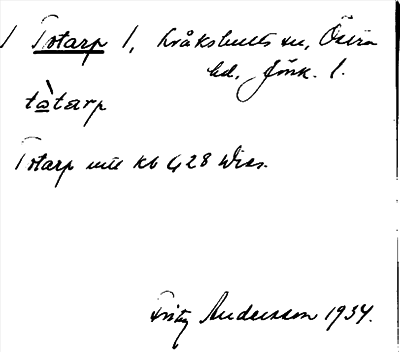 / Totarp /, Kråkshults sn, Östra
hd, Jönk. l.
tàtarp
Totarp mtl kb 428 Wies.
Fritz Andersson 1934.